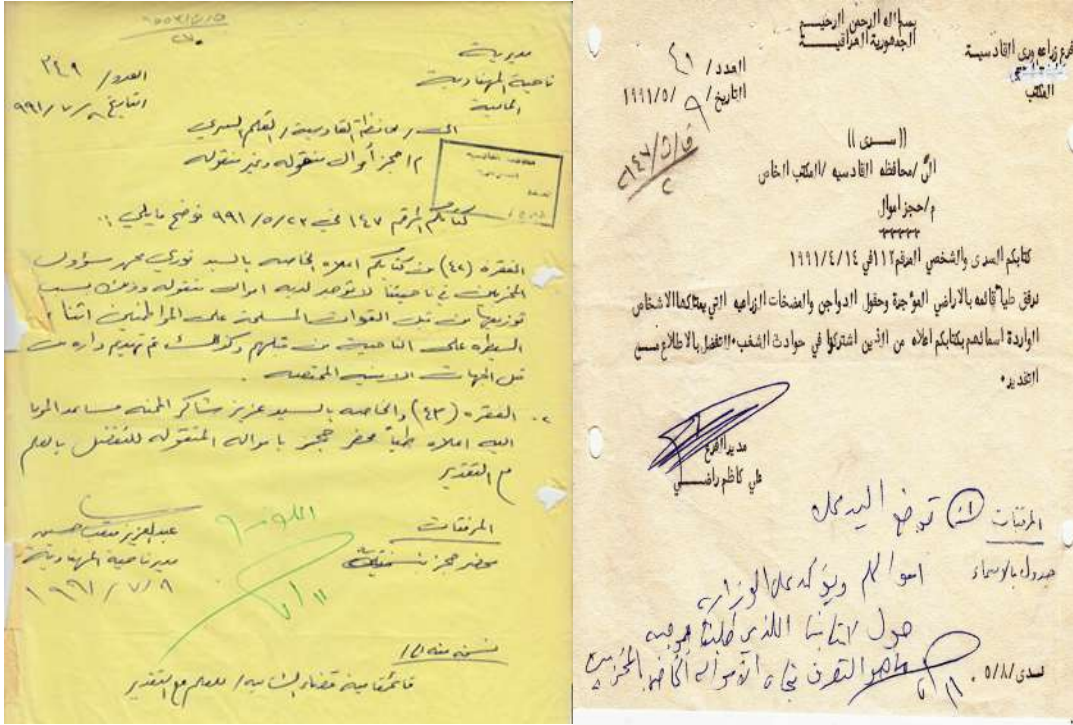 بسم الله الرحمن الرحيم
الجمهورية العراقية
فرع زراعه وري القادسية
المكتب
العدد / ٤٩
التاريخ / ٩ /١٩٩١/٥
(( سـرى ))
الى /محافظه القادسيه /المكتب الخاص
م/حجز اموال
كتابكم السرى والشخصي المرقم ١١٢ في ١٩٩١/٤/١٤
نرفق طيا قائمه بالاراضي المؤجرة وحقول الدواجن والمضخات الزراعيه التي يمتلكها الاشخاص
الواردة اسمائهم بكتابكم اعلاه من الذين اشتركوا في حوادث الشغب٠التفضل بالاطلاع مـع
التقدير٠
مدير الفرع
علي كاظم راضـي
المرفقات
جدول بالاسماء
توضع اليد على
اموالهم ويؤكد على الوزارة
حول كتابنا
٥/٨/
مديرية
ناحية المهناوية
المالية
العدد / ٣٤٩
التاريخ ٨ / ٧ / ٩٩١
الى / محافظة القادسية / القلم السري
م / حجز أموال منقوله وغير منقوله
كتابكم المرقم ١٤٧ في ٩٩١/٥/٢٣ نوضح مايلي :.
الفقره (٤٢) من كتابكم اعلاه الخاصه بالسيد نوري
المخربين في ناحيتنا لا توجد لديه اموال منقوله وذلك بسبب
توزيعها من قبل القوات المسلحة على المواطنين اثناء
السيطره على الناحية من قبلهم وكذلك تم تهديم داره من
قبل الجهات الامنيه المختصه .
٢. الفقره (٤٣) والخاصه بالسيد عزيز شاكر مساعد الموما
اليه اعلاه طياً محضر حجز بامواله المنقوله للتفضل بالعلم
مع التقدير
المرفقات
محضر حجز بنسختين
عبدالعزيز حسين
مدير ناحية المهناوية
١٩٩١/٧/٨
نسخه منه الى /
قائمقامية قضاء الشاميه / للعلم مع التقدير